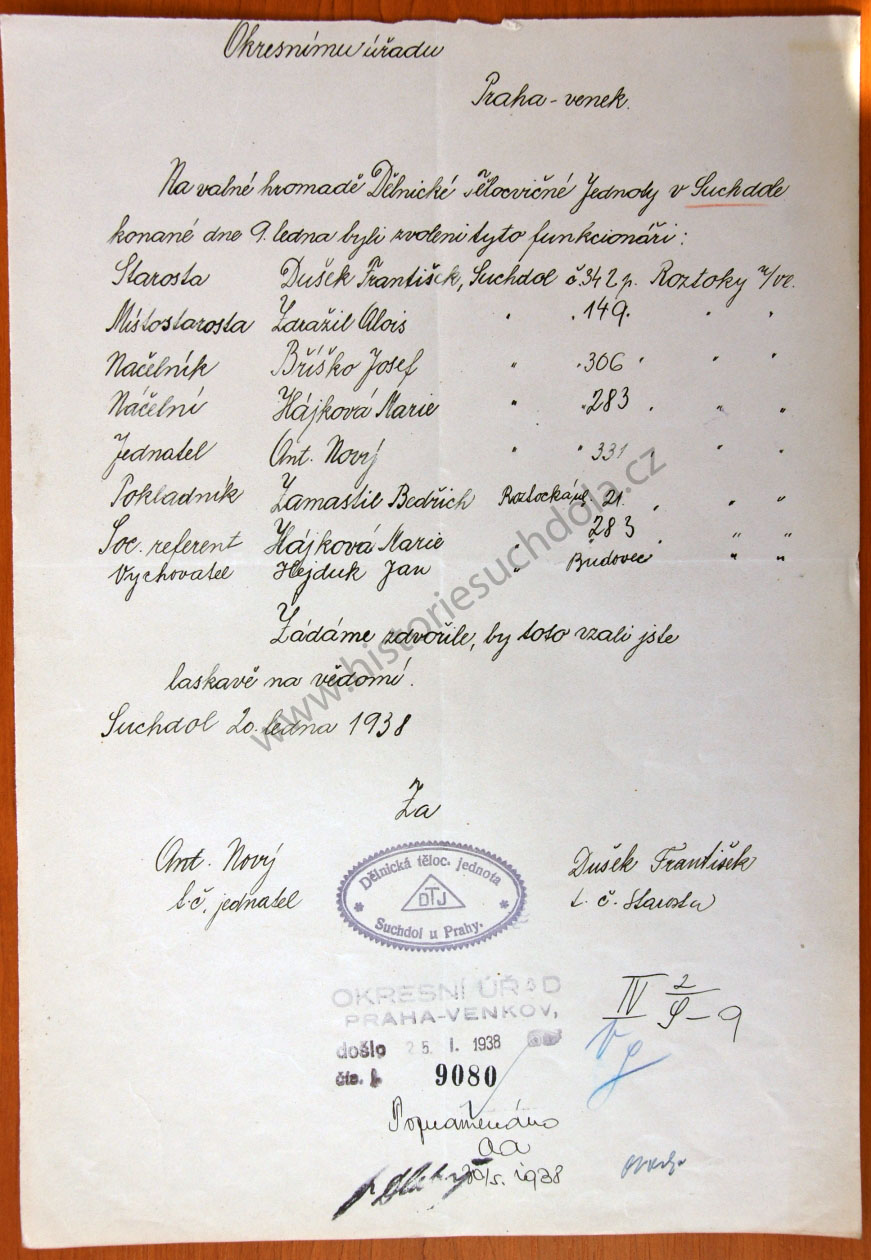 Okresnímu úřadu
Praha-venek.
Na valné hromadě Dělnické Tělocvičné Jednoty v Suchdole
konané dne 9. ledna byli zvoleni tyto funkcionáři:
Starosta Dušek František, Suchdol č. 342 p. Roztoky n/vr.
Místostarosta Zdražil Alois " " 149. " "
Načelník Bříško Josef " " 306 " " "
Náčelní Hájková Marie " " 283 " " "
Jednatel Ant. Nový " " 331 " " "
Pokladník Zamastil Bedřich Roztocká ul. 21. " " "
Soc. referent Hájková Marie 283 " "
Vychovatel Hejduk Jan " Budovec " "
Žádáme zdvořile, by toto vzali jste
laskavě na vědomí.
Suchdol 20. ledna 1938
Za
Ant. Nový Dušek František
t.č. jednatel t. č. Starosta
Dělnická těloc. jednota
DTJ
Suchdol u Prahy.
OKRESNÍ ÚŘAD
PRAHA-VENKOV,
došlo 25. I. 1938
čís. j. 9080
IV 2/9-9
Poznamenáno
aa
1938
www.historiesuchdola.cz